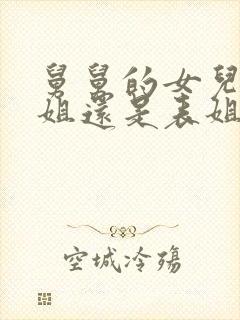 舅舅的女兒
姐還是表姐
空城冷殤